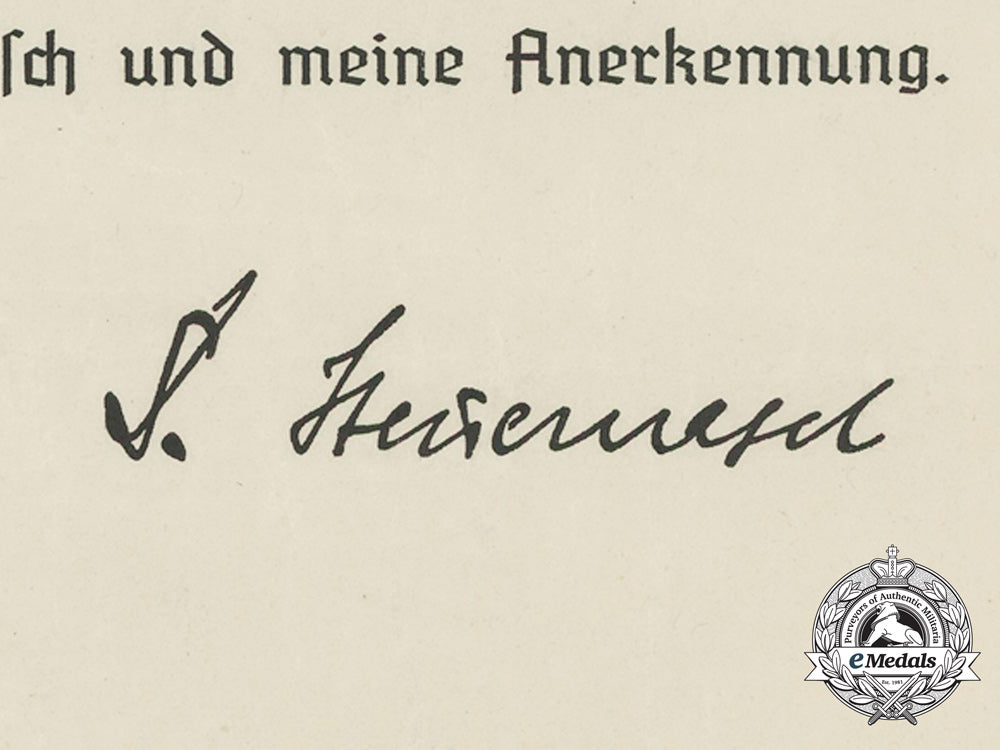 sch und meine Anerkennung.
Purveyors of Authentic Militaria
eMedals
Est. 1981